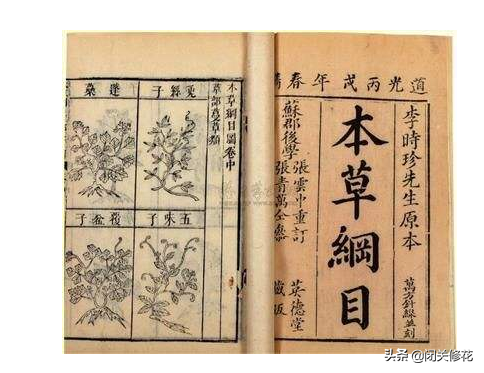 道光丙戌年春
李時珍先生原本
本草綱目
萬方針線並刻
蘇郡後學
張雲中重訂
張青萬仝參
英德堂
藏板
本草綱目圖卷中
草部蔓草類
菟絲子
蓬蘽
五味子
覆盆子
头条 @闭关修花